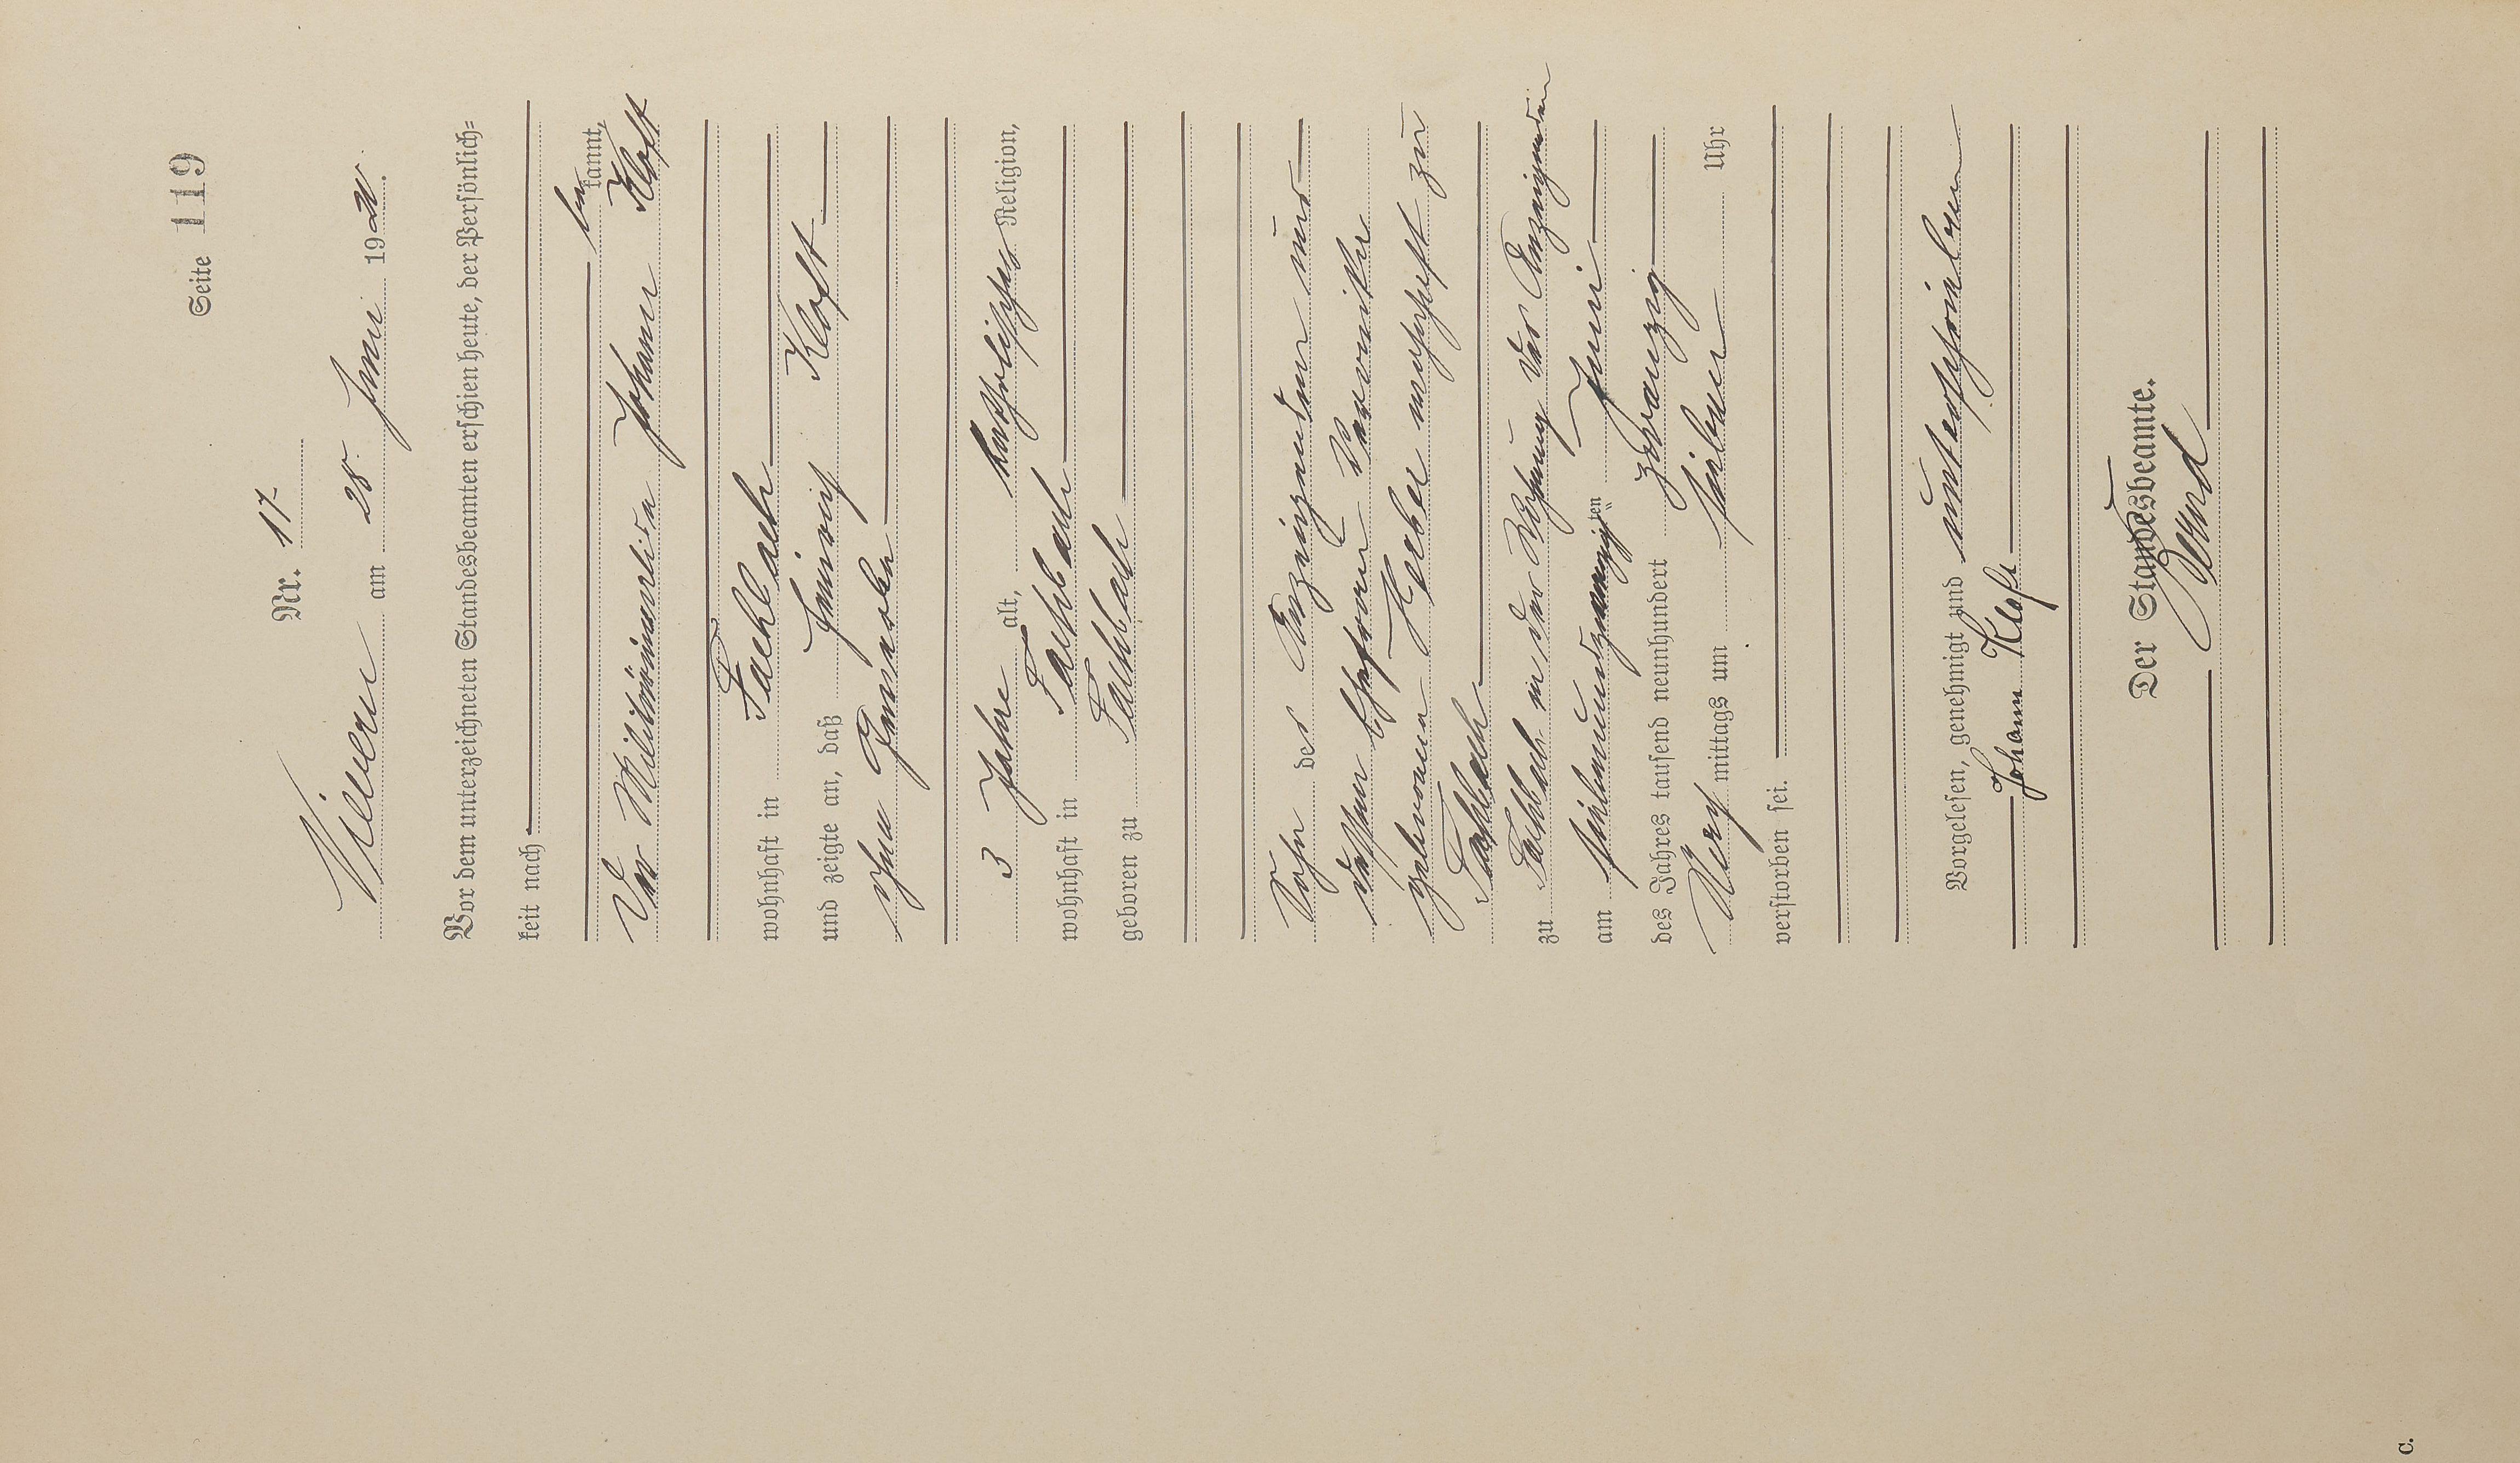 Seite 119
Nr. 17
Nievern am 28. Juni 1920.
Vor dem unterzeichneten Standesbeamten erschien heute, der Persönlich-
keit nach
be kannt,
Der Militärinvalide Johann Kloft
wohnhaft in Fachbach
und zeigte an, daß Heinrich Kloft
ohne Gewerbe
3 Jahre alt, katholischer Religion,
wohnhaft in Fachbach
geboren zu Fachbach
Sohn des Anzeigenden und
dessen Ehefrau Veronika
geborenen Kerber wohnhaft zu
Fachbach
zu Fachbach in der Wohnung des Anzeigenden
am siebenundzwanzigsten Juni
des Jahres tausend neunhundert zwanzig
Nach mittags um sieben Uhr
verstorben sei.
Vorgelesen, genehmigt und unterschrieben
Johann Kloft
Der Standesbeamte.
c.